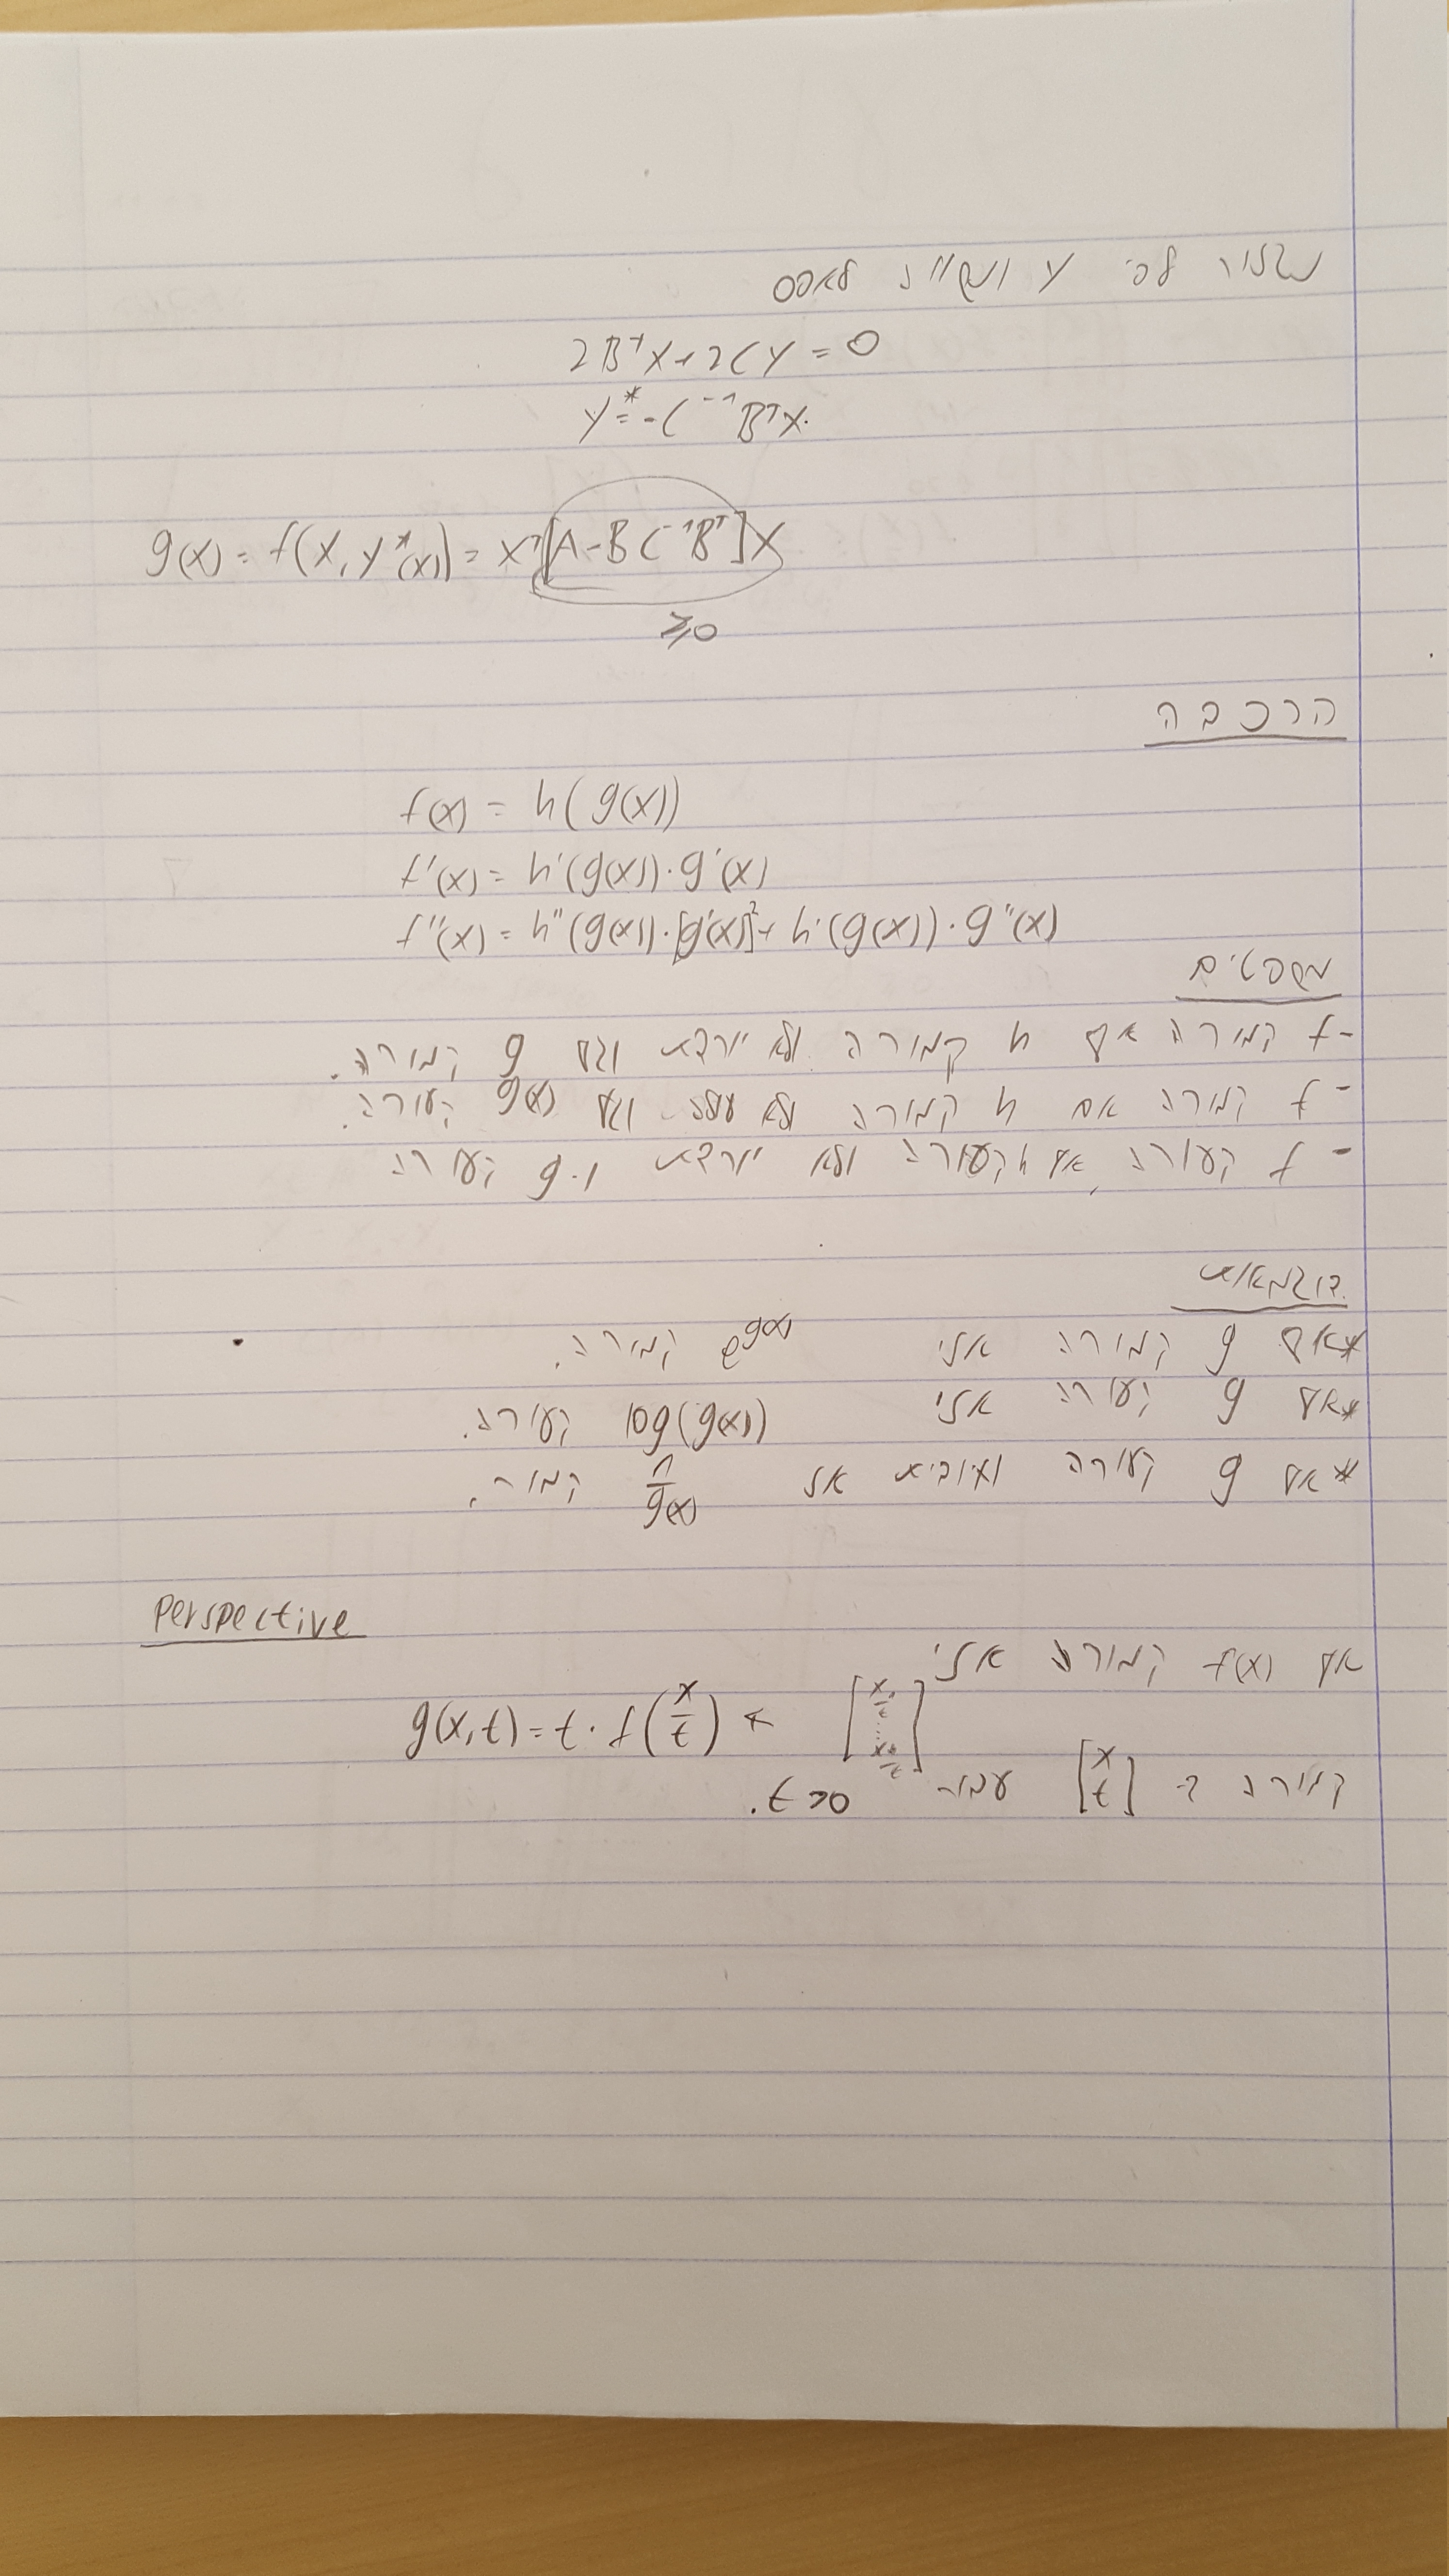 נגזור לפי y ונשווה לאפס
2BᵀX + 2Cy = 0
y* = -C⁻¹BᵀX.
g(x) = f(x, y*(x)) = xᵀ[A - BC⁻¹Bᵀ]x
≥0
הרכבה
f(x) = h(g(x))
f'(x) = h'(g(x))·g'(x)
f''(x) = h''(g(x))·[g'(x)]² + h'(g(x))·g''(x)
משפטים
- f קמורה אם h קמורה ולא יורדת וגם g קמורה.
- f קמורה אם h קמורה ולא עולה וגם g(x) קעורה.
- f קעורה אם h קעורה ולא יורדת ו-g קעורה
דוגמאות
* אם g קמורה אזי e^g(x) קמורה.
* אם g קעורה אזי log(g(x)) קעורה.
* אם g קעורה וחיובית אז 1/g(x) קמור.
Perspective
אם f(x) קמורה אזי
g(x,t) = t·f(x/t)
קמורה ב- [x t] עבור t>0.